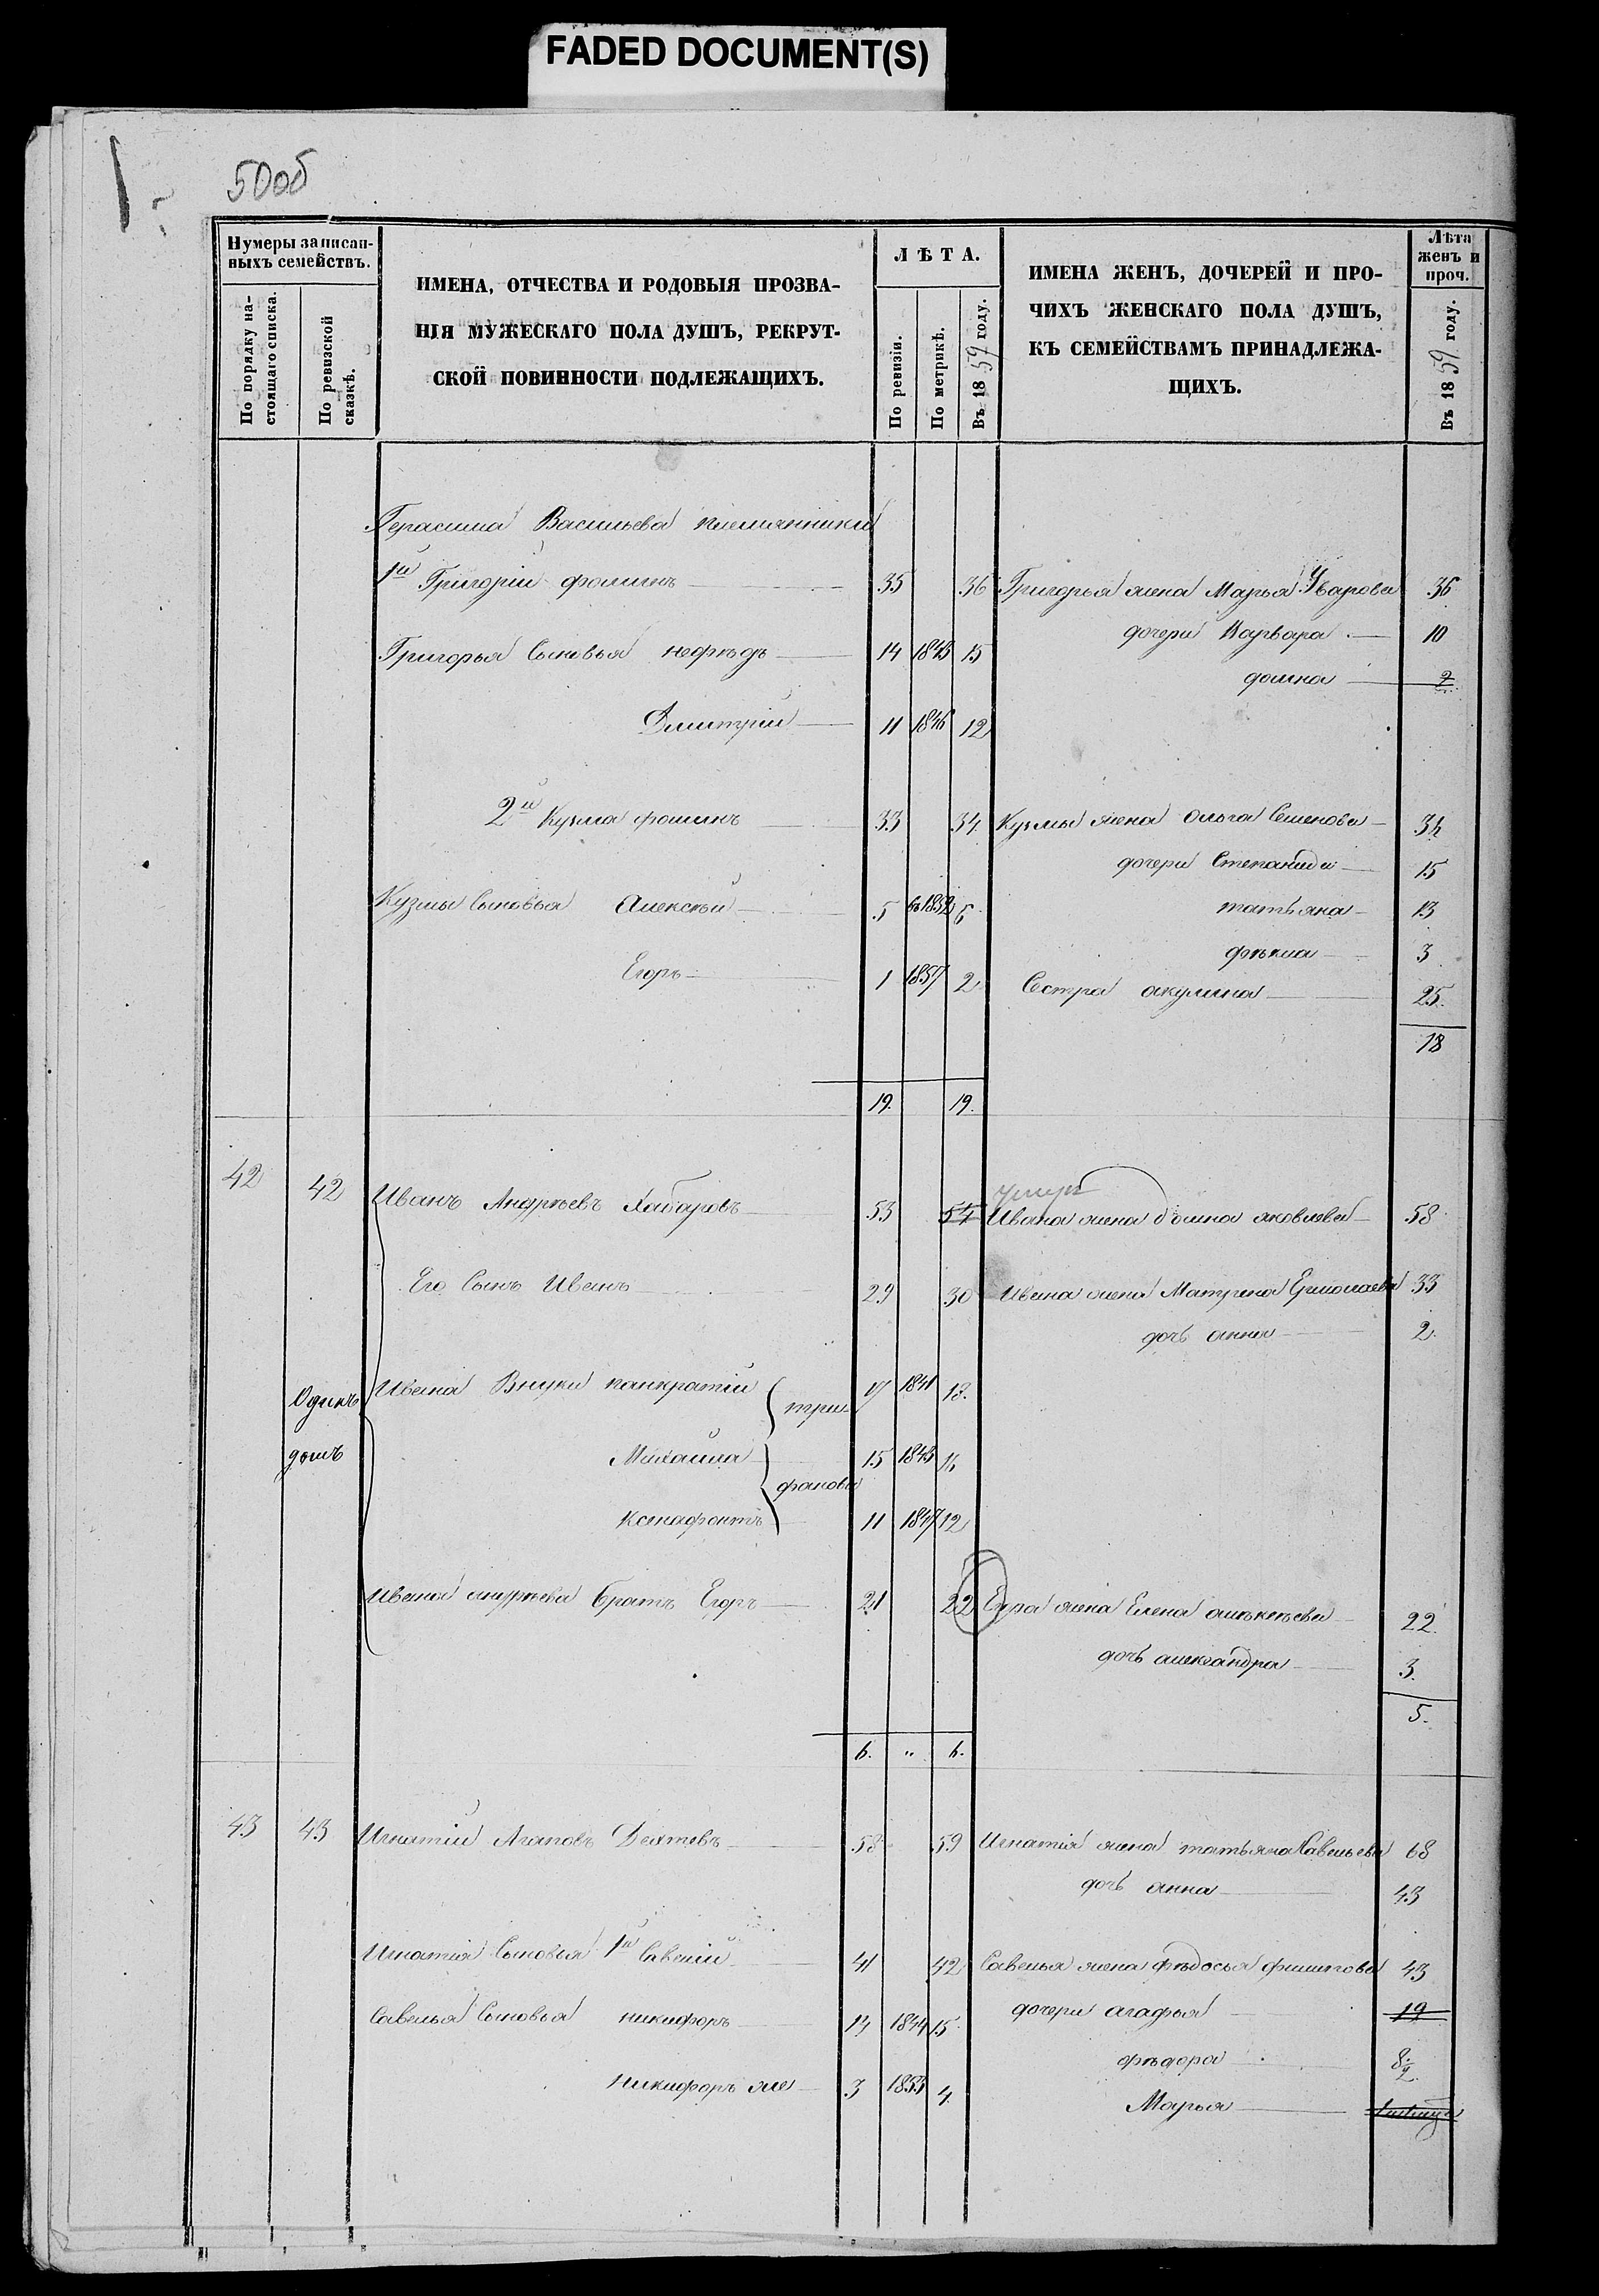 FADED DOCUMENT(S)
50об
Нумеры записан-
ныхъ семействъ.
По порядку на-
стоящаго списка.
По ревизской
сказкѣ.
ИМЕНА, ОТЧЕСТВА И РОДОВЫЯ ПРОЗВА-
НІЯ МУЖЕСКАГО ПОЛА ДУШЪ, РЕКРУТ-
СКОЙ ПОВИННОСТИ ПОДЛЕЖАЩИХЪ.
ЛѢТА.
По ревизіи.
По метрикѣ.
Въ 1859 году.
ИМЕНА ЖЕНЪ, ДОЧЕРЕЙ И ПРО-
ЧИХЪ ЖЕНСКАГО ПОЛА ДУШЪ,
КЪ СЕМЕЙСТВАМЪ ПРИНАДЛЕЖА-
ЩИХЪ.
Лѣта
женъ и
проч.
Въ 1859 году.
Герасима Васильева племянники
1й Григорій фоминъ 35 36 Григорья жена Марья Уварова 36
дочери Варвара 10
Григорья Сыновья нефѣдъ 14 1843 15
домна 2
Дмитрій 11 1846 12
2й Кузма фоминъ 33 34 Кузмы жена Ольга Семенова 34
дочери Степанида 15
Кузмы Сыновья Алексѣй 5 1852 6 татьяна 13
фѣкла 3
Егоръ 1 1857 2 Сестра акулина 25.
18
19. 19.
42 42 Иванъ Андрѣевъ Хабаровъ 53 54 Ивана жена домна яковлева 58
умеръ
Его Сынъ Иванъ 29 30 Ивана жена Матрена Ермолаева 33
дочь анна 2.
Одинъ
домъ
Ивана Внуки панкратій три- 17 1841 18.
Михаила 15 1843 16
фановы
ксенафонтъ 11 1847 12
Ивана андрѣева братъ Егоръ 21 22 Егора жена Елена алѣксѣева 22.
дочь александра 3.
5.
6. " 6.
43 43 Игнатій Агаповъ Дехтевъ 58 59 Игнатія жена татьяна Савельева 68
дочь анна 43
Игнатія Сыновья 1й Савелій 41 42 Савелья жена фѣдосья филипова 43
Савелья Сыновья никифоръ 14 1844 15 дочери агафья 19
фѣдора 8.
Никифоръ же 3 1853 4 Марья